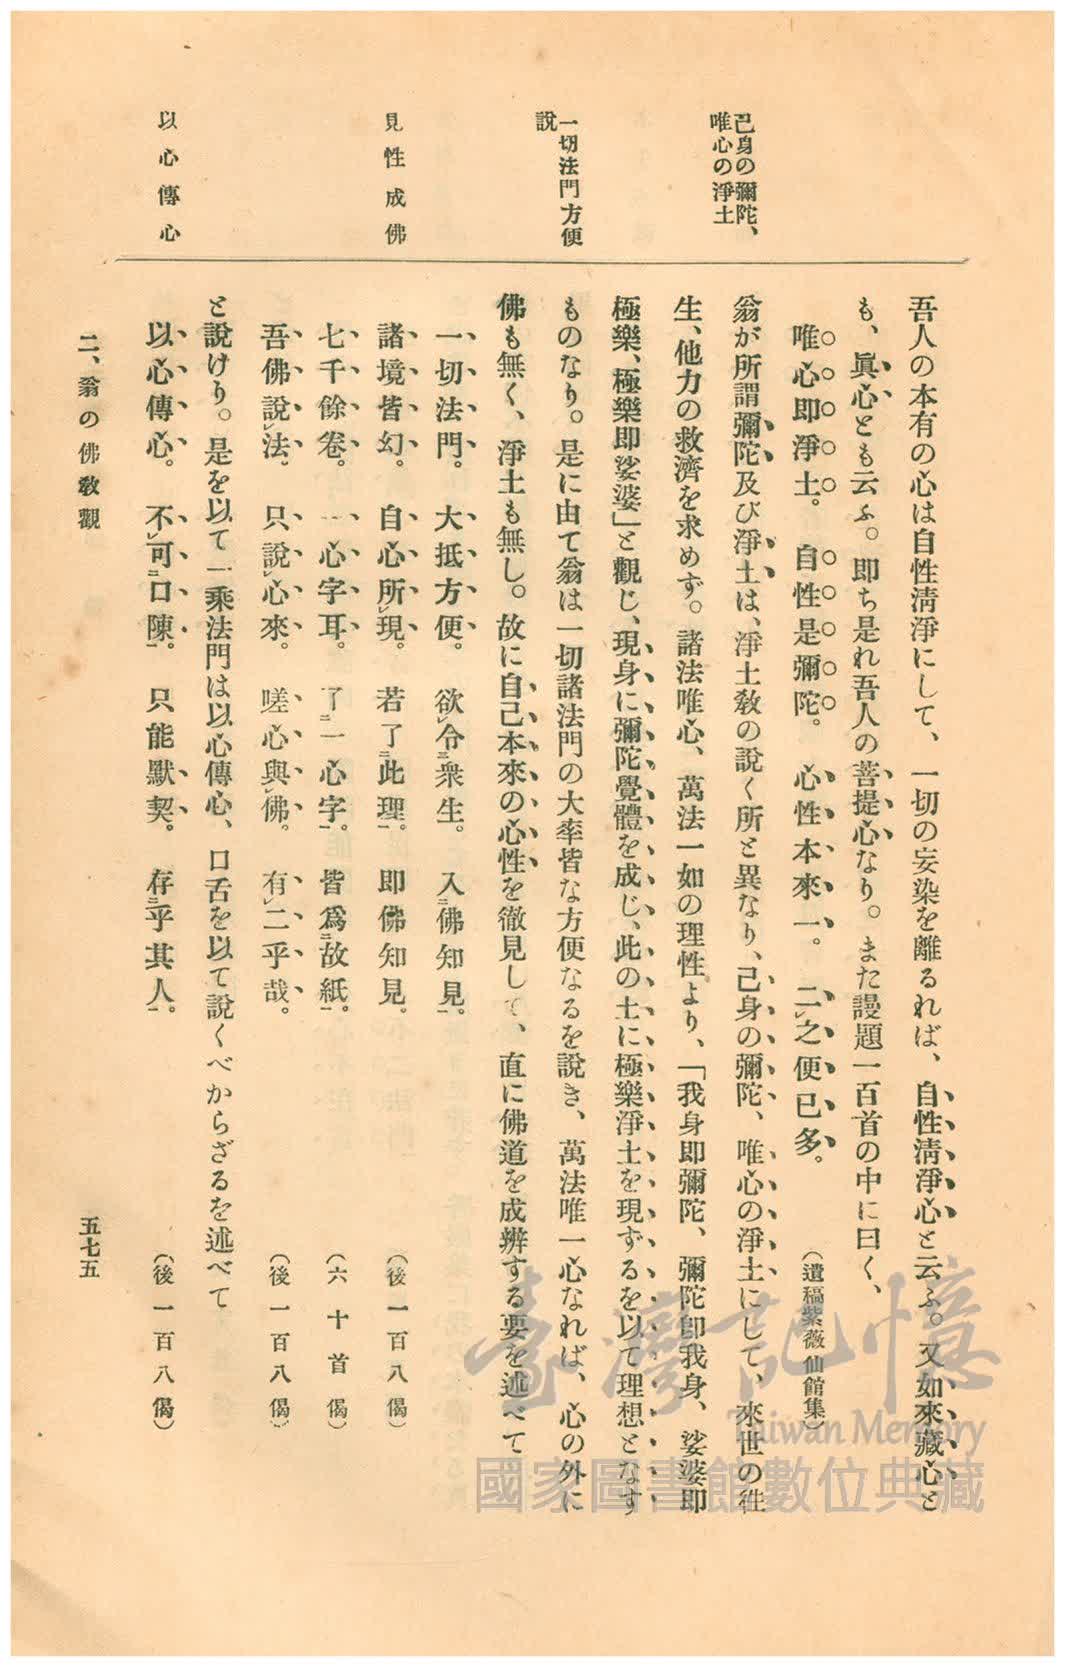 己身の彌陀、
唯心の淨土
一切法門方便
說
見性成佛
以心傳心
吾人の本有の心は自性淸淨にして、一切の妄染を離るれば、自性淸淨心と云ふ。又如來藏心と
も、眞心とも云ふ。卽ち是れ吾人の菩提心なり。また謾題一百首の中に曰く、
唯心卽淨土。 自性是彌陀。 心性本來一。 二レ之便已多。 （遺稿紫薇仙館集）
翁が所謂彌陀及び淨土は、淨土敎の說く所と異なり、己身の彌陀、唯心の淨土にして、來世の往
生、他力の救濟を求めず。諸法唯心、萬法一如の理性より、「我身卽彌陀、彌陀卽我身、娑婆卽
極樂、極樂卽娑婆」と觀じ、現身に彌陀覺體を成じ、此の土に極樂淨土を現ずるを以て理想となす
ものなり。是に由て翁は一切諸法門の大率皆な方便なるを說き、萬法唯一心なれば、心の外に
佛も無く、淨土も無し。故に自己本來の心性を徹見して、直に佛道を成辨する要を述べて
一切法門。 大抵方便。 欲レ令二衆生。 入二佛知見一。
諸境皆幻。 自心所レ現。 若了二此理一。 卽佛知見。 （後一百八偈）
七千餘卷。 一心字耳。 了二一心字一。 皆爲二故紙一。 （六十首偈）
吾佛說レ法。 只說レ心來。 嗟心與レ佛。 有レ二乎哉。 （後一百八偈）
と說けり。是を以て一乘法門は以心傳心、口舌を以て說くべからざるを述べて
以心傳心。 不レ可二口陳一。 只能默契。 存二乎其人一。 （後一百八偈）
二、翁の佛敎觀
五七五
臺灣記憶
Taiwan Memory
國家圖書館數位典藏